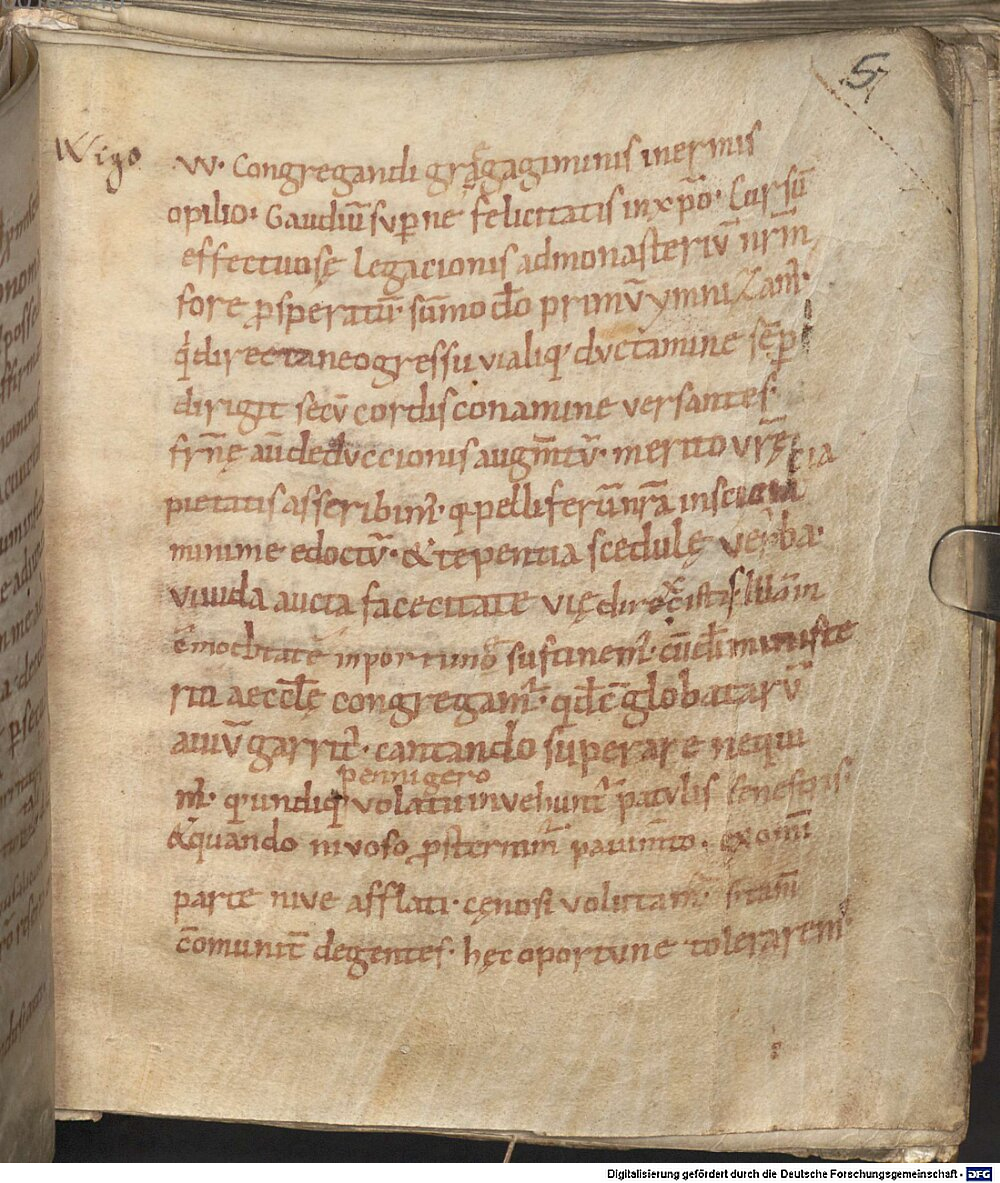 5
Wigo
W. Congregandi grã gagiminis inermis
opilio. Gaudiũ sup̱ne felicitatis in xp̃o. Cursũ
effectuosę legacionis ad monasteriũ nr̃m,
fore ꝓsperatũ. sũmo do̅ primũ ymnizam̃.
directaneo gressu vialiq; ductamine sẽp̱
dirigit secũ cordis conamine versantes.
fr̃nę aũ deduccionis augm̃tũ. merito vr̃ę
pietatis asseribim̃. pelliferũ nr̃a inscicia
minime edoctũ. & tepentia scedulę verba.
viuida aucta facecitate vię direxistis.
inportunẽ sustinem̃. ministe
ria aeccl̃ę congregam̃. globatarũ
auiũ garrit̃. cantando superare nequi
pennigero
m̃. undiq; volatu invehunt̃ patulis fenestris.
& quando nivoso ꝓsternim̃ pavim̃to. ex om̃i
parte nive afflati. cęnosi volutam̃.
cõmunit̃ degentes. hęc oportune tolerarem̃
Digitalisierung gefördert durch die Deutsche Forschungsgemeinschaft - DFG